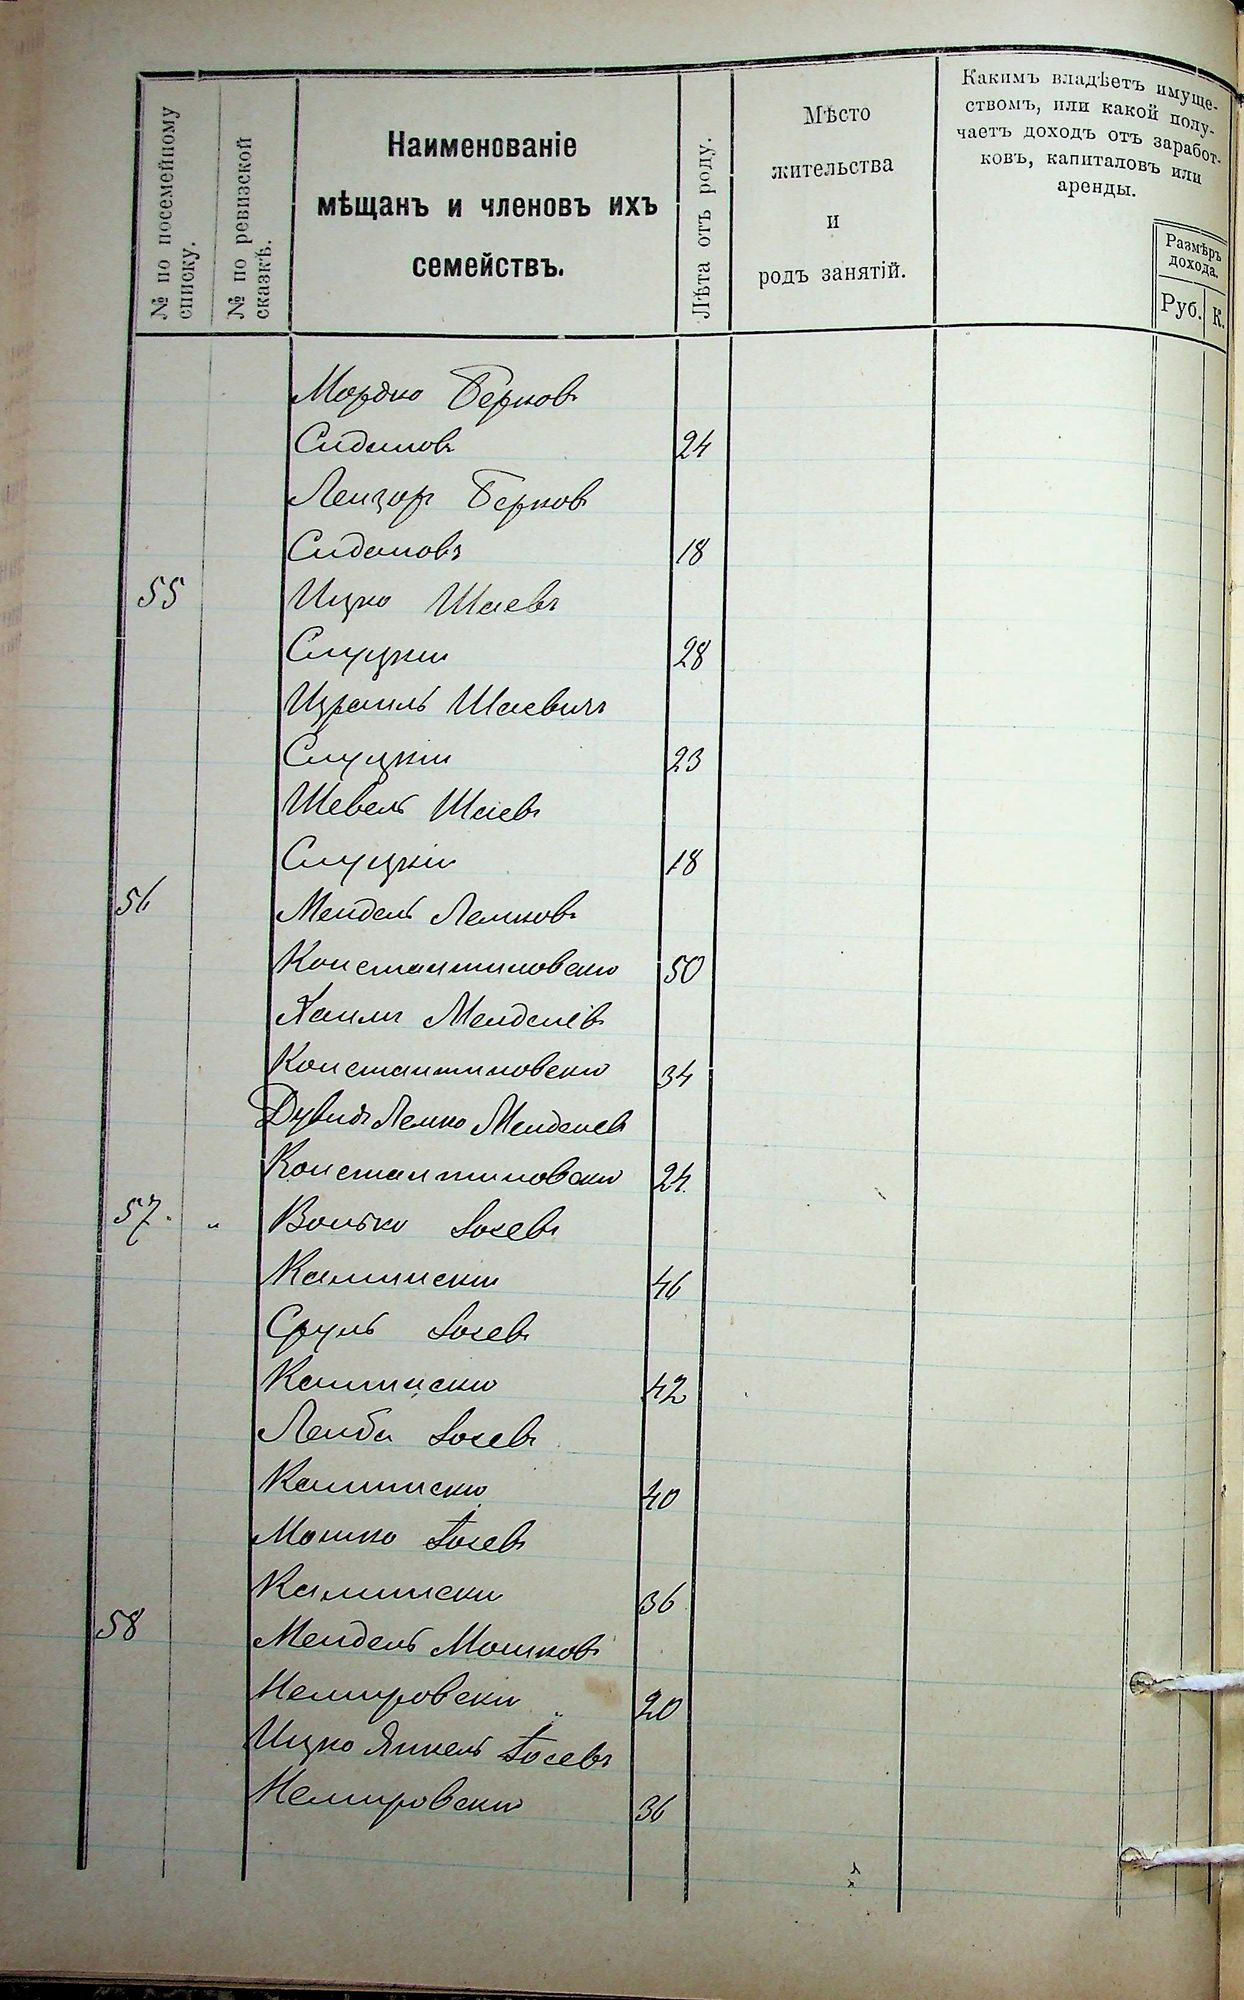 № по посемейному
списку.
№ по ревизской
сказкѣ.
Наименованіе
мѣщанъ и членовъ ихъ
семействъ.
Лѣта отъ роду.
Мѣсто
жительства
и
родъ занятій.
Какимъ владѣетъ имуще-
ствомъ, или какой полу-
чаетъ доходъ отъ заработ-
ковъ, капиталовъ или
аренды.
Размѣръ
дохода.
Руб. К.
Мордко Берковъ
24
Лейзоръ Берковъ
18
55 Ицко Шаевъ
Слуцкій 28
Израиль Шаевичъ
Слуцкій 23
Шевель Шаевъ
Слуцкій 18
56 Мендель Лемковъ
Константиновскій 50
Хаимъ Менделевъ
Константиновскій 34
Дувидъ Лемко Менделевъ
Константиновскій 24.
57. " Волько Іосевъ
Каминскій 46
Сруль Іосевъ
Каминскій 42
Лейба Іосевъ
Каминскій 40
Мошко Іосевъ
Каминскій 36
58 Мендель Мошковъ
Немировскій 20
Ицко Янкель Іосевъ
Немировскій 36